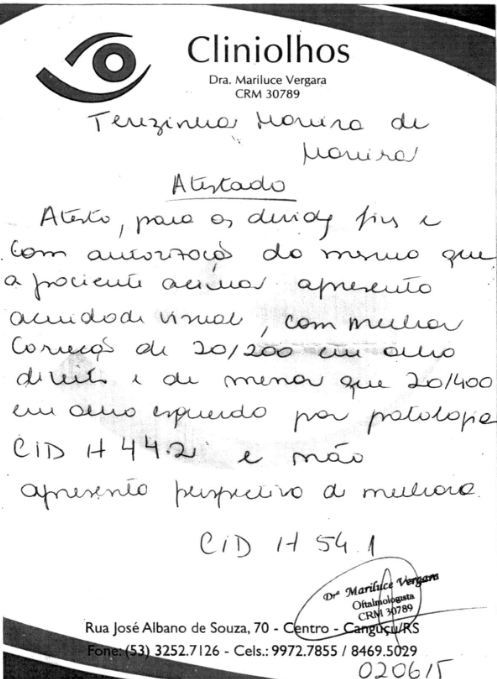 Cliniolhos
Dra. Mariluce Vergara
CRM 30789
Terezinha Moreira de
Moreira
Atestado
Atesto, para os devidos fins e
com autorização do mesmo que
a paciente acima apresenta
acuidade visual, com melhor
correção de 20/200 em olho
direito e de menor que 20/400
em olho esquerdo por patologia
CID H 44.2 e não
apresenta perspectiva de melhora.
CID H 54.1
Drª Mariluce Vergara
Oftalmologista
CRM 30789
Rua José Albano de Souza, 70 - Centro - Canguçu/RS
Fone: (53) 3252.7126 - Cels.: 9972.7855 / 8469.5029
020615